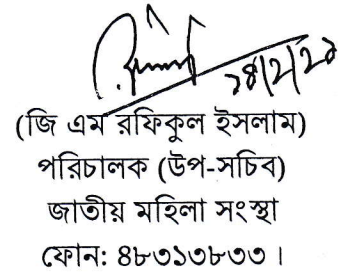 (জি এম রফিকুল ইসলাম)
পরিচালক (উপ-সচিব)
জাতীয় মহিলা সংস্থা
ফোন: ৪৮৩১৩৮৩৩ ।